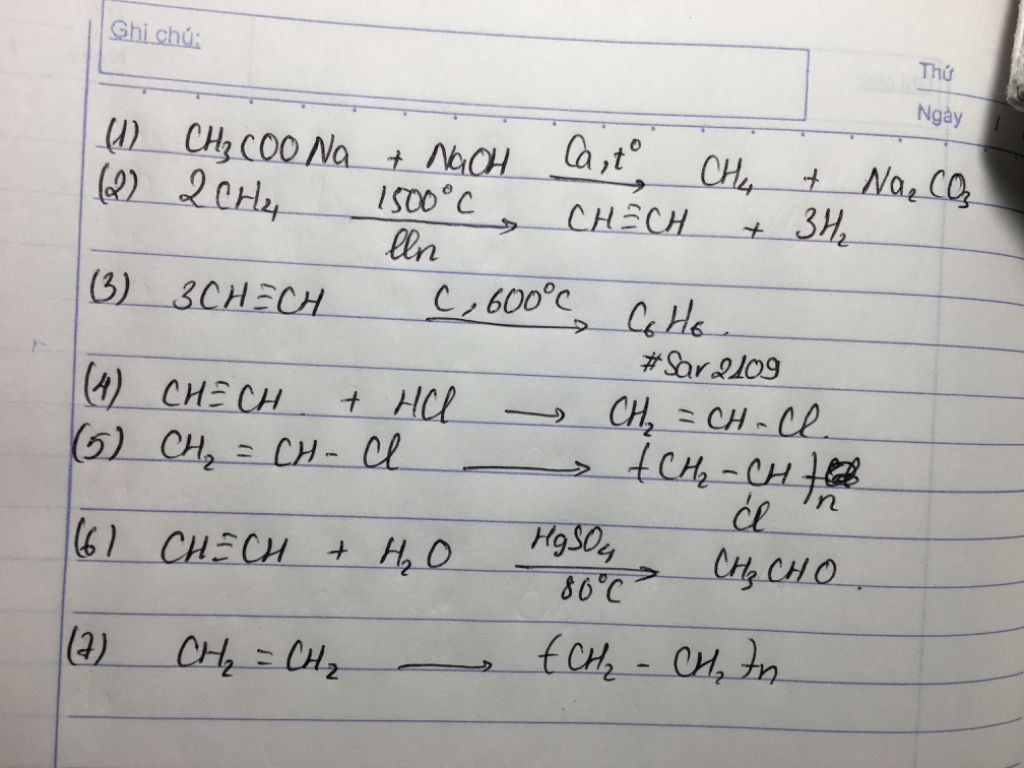 Ghi chú:
Thứ
Ngày
(1) CH₃COONa + NaOH Ca,t° → CH₄ + Na₂CO₃
(2) 2CH₄ 1500°C → lln CH≡CH + 3H₂
(3) 3CH≡CH C,600°C → C₆H₆.
#Sar2109
(4) CH≡CH + HCl → CH₂=CH-Cl.
(5) CH₂=CH-Cl → (CH₂-CH)n
Cl
(6) CH≡CH + H₂O HgSO₄ → 80°C CH₃CHO.
(7) CH₂=CH₂ → (CH₂-CH₂)n